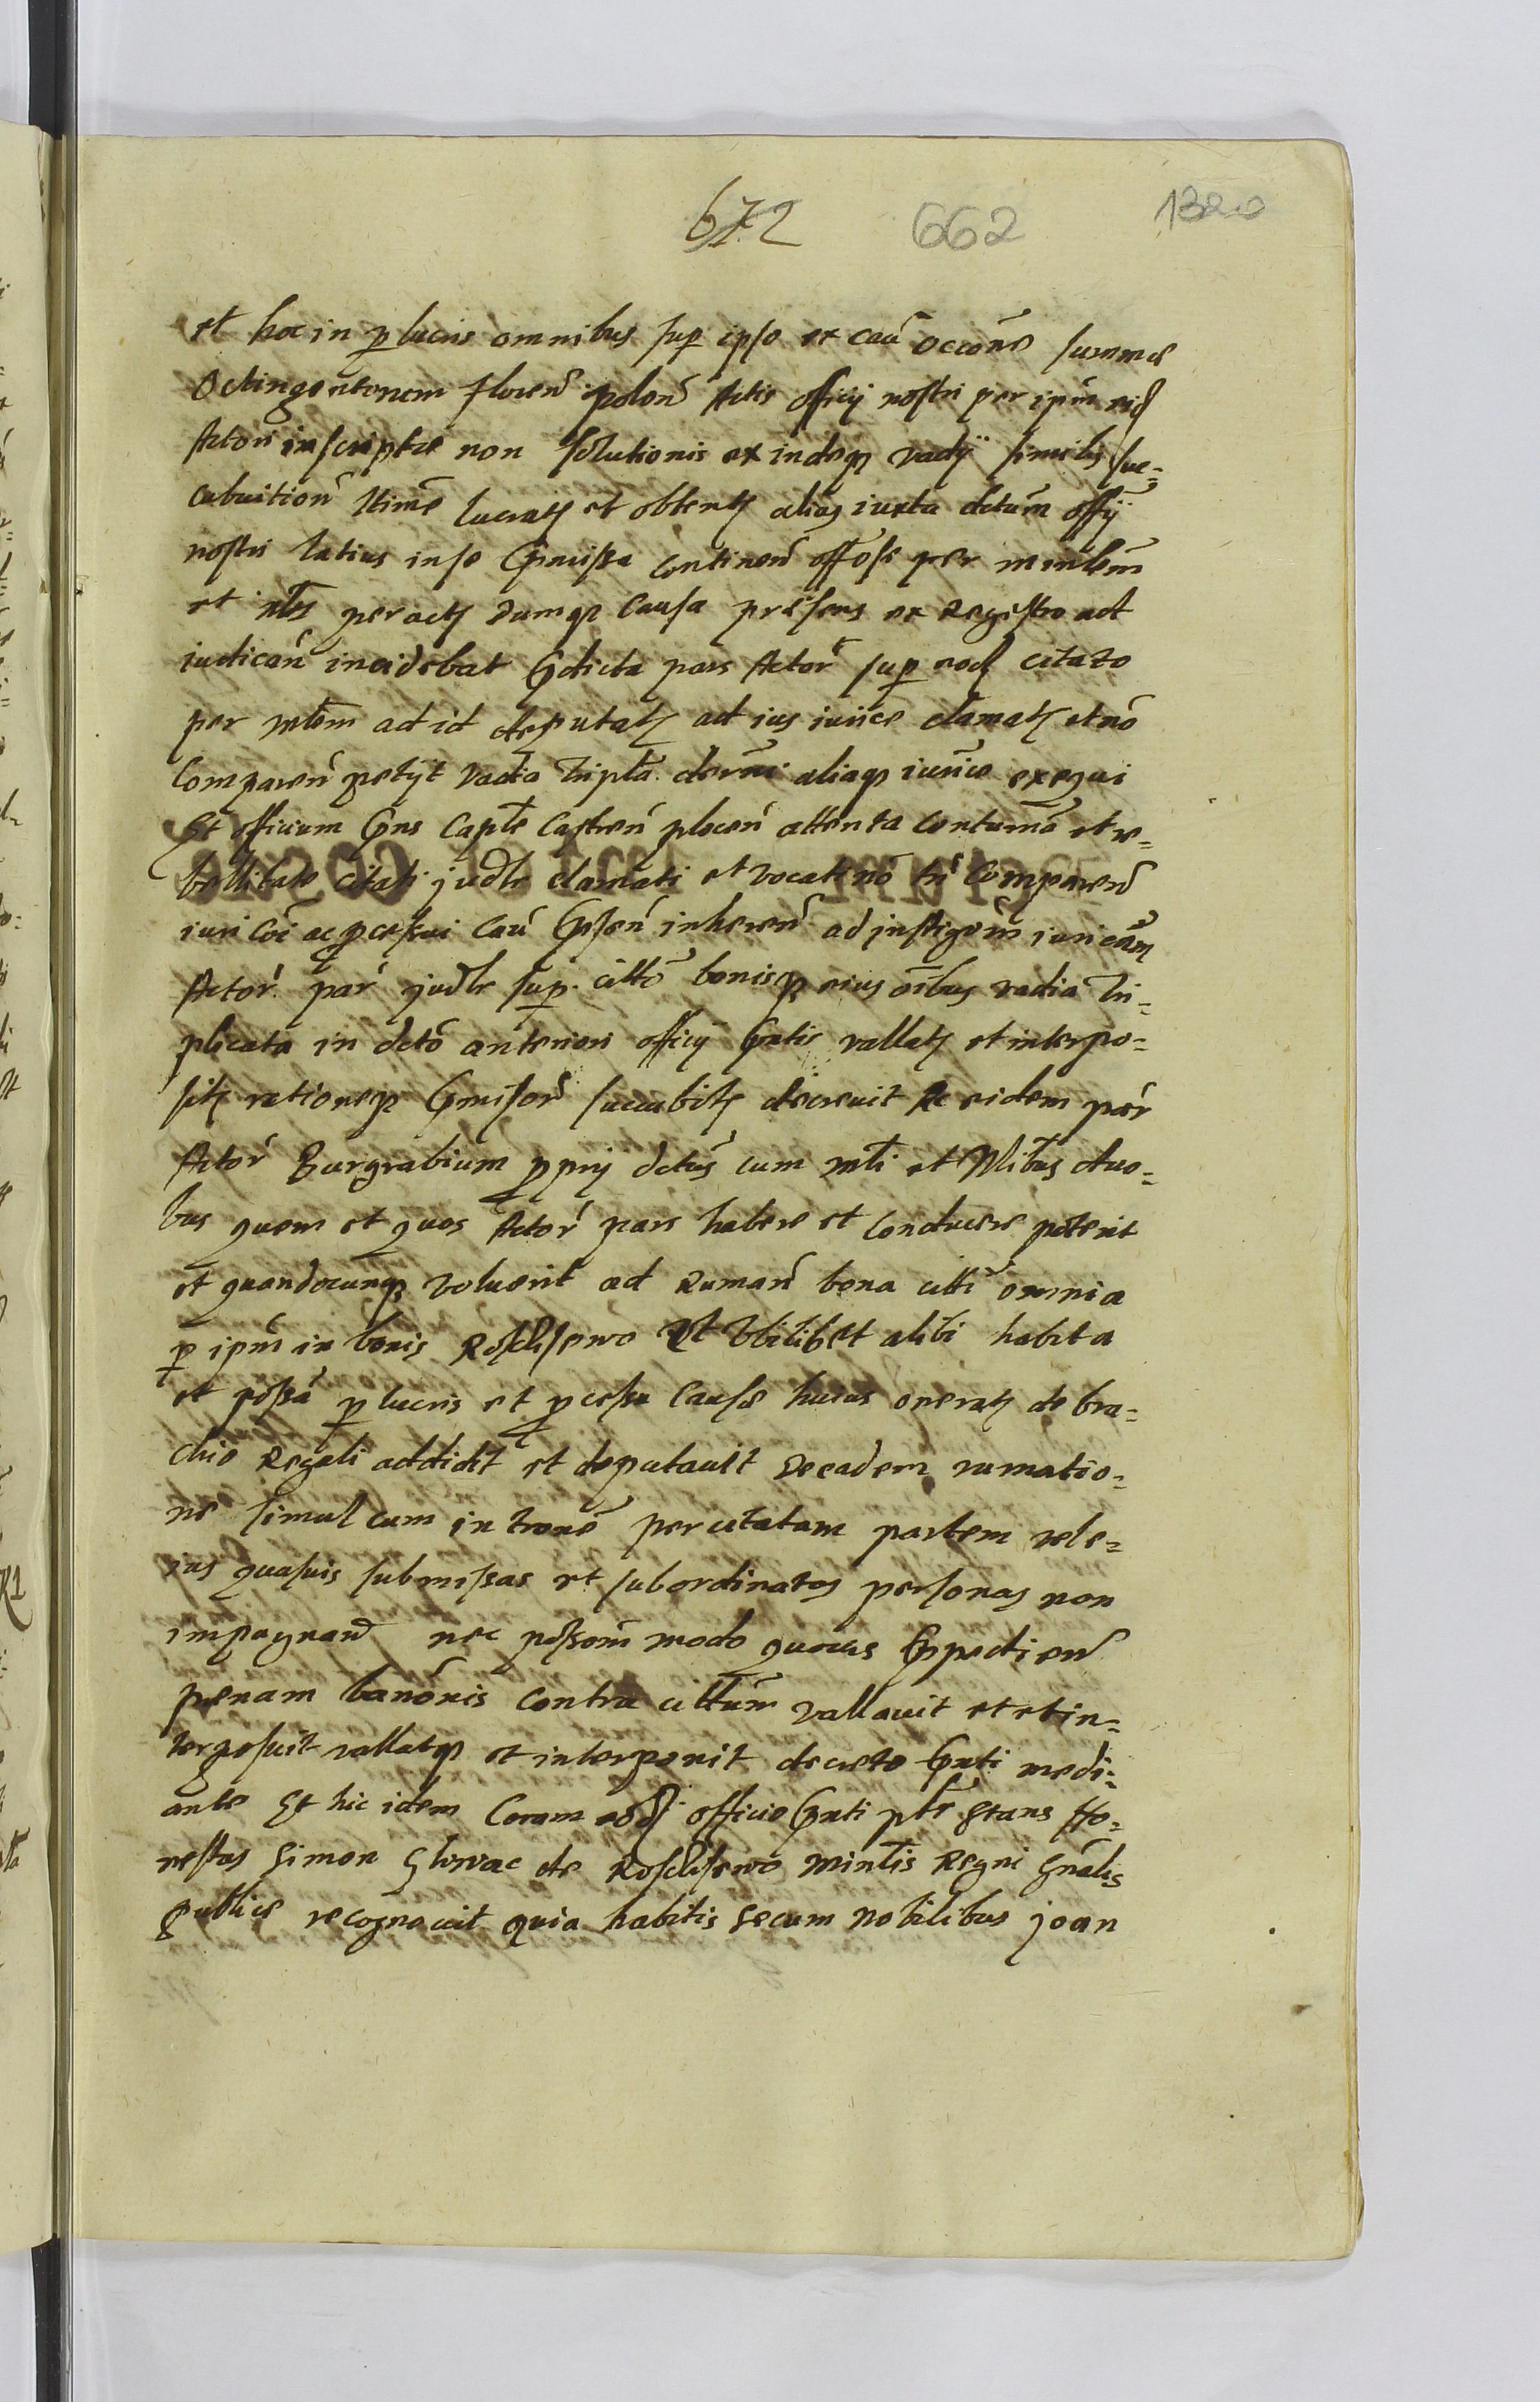 672 662 1320
et hoc in p lucris omnibus sup ipso ex caū occone summæ
Octingentorum floreñ poloñ Actis officij nostri per ipm eid
Actori inscriptæ non solutionis exindeqz vadij similis suc=
cubuitioñ ltime lucratz et obtentz alias iuxta dctum offij
nostri latius in se præmissa continen offose per minlem
et nles peractz dumqz causa præsens ex Regestro ad
iudicañ incidebat prædicta pars Actor sup eod citato
per mlem ad id deputatz ad ius iurice clamatz et no
Compareñ petijt vadia tripla decrni aliaqz iurice exequi
Et officium præns Capte Castreñ ploceñ attenta contumã et re=
bellitate citati judtr clamati et vocati no tn compareñ
iuri coi ac pcessui cau præseñ inhereñ ad instigom iuricam
Actor par judtr sup citto bonisqz eius oibus vadia tri=
plicata in dcto anteriori officij præntis vallatz et interpo=
sitz rationeqz præmissor succubitz decrevit Ac eidem par
Actor Burgrabium pprij dctus cum mli et Nlibus duo=
bus quem et quos Actor pars habere et conducere poterit
et quandocunqz voluerit ad Rumañ bona citti omnia
p ipm in bonis Roscissewo Et Ubilibet alibi habita
et possa p lucris et pcessu Causæ huius operatz de bra=
chio Regali addidit et deputavit Deeadem rumatio=
ne simul cum introne per citatam partem vele=
ius quasuis submissas et subordinatas personas non
impugnañ nec possom modo quouis præpedieñ
penam banonis contra cittum vallavit et etin=
terposuit vallatqz et interponit decreto prænti medi=
ante Et hic idem Coram eod officio prænti ptr Stans Ho=
nestus Simon de Roscissewo Minlis Regni Gnalis
publice recognovit quia habitis secum Nobilibus joan